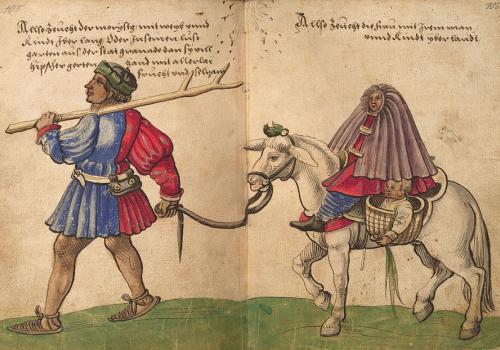 105.
Allso Zeucht der morysg mit weyb unnd
Kindt Iber lanz Oder Inseinen lust
garten aus der stat granada dan sy vill
hipscher gerten hand mit allerlai
frucht und
Allso Zeucht die frau mit Irem man
unnd Kindt yber landt